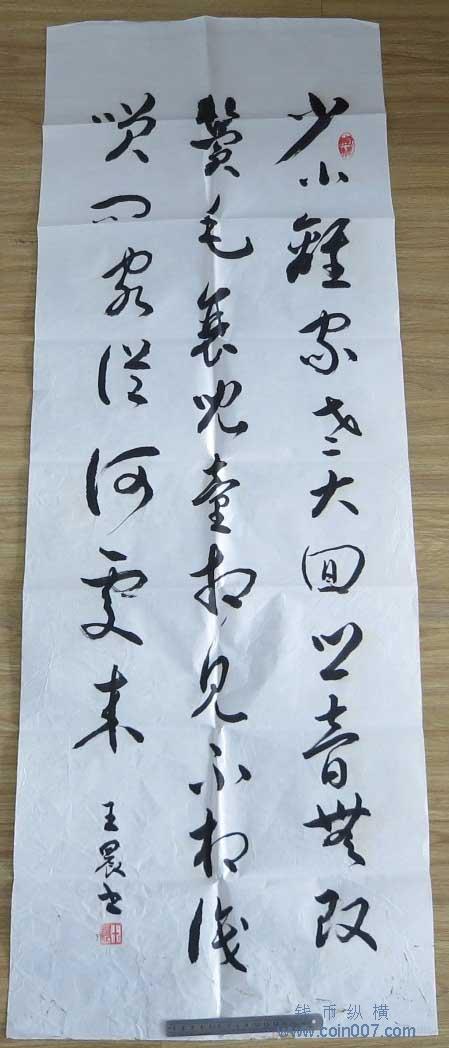 少小離家老大回鄉音無改
鬢毛衰兒童相見不相識
咲問客從何處來
王晨书
钱币纵横
www.coin007.com